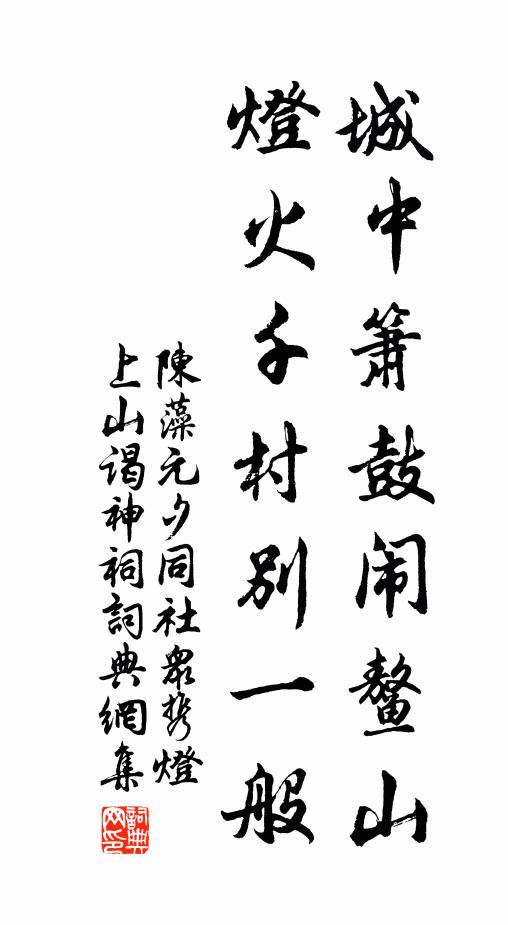 城中箫鼓闹鳌山
燈火千村别一般
陳藻元夕同社衆携燈
上山谒神祠詞典網集
詞典网印